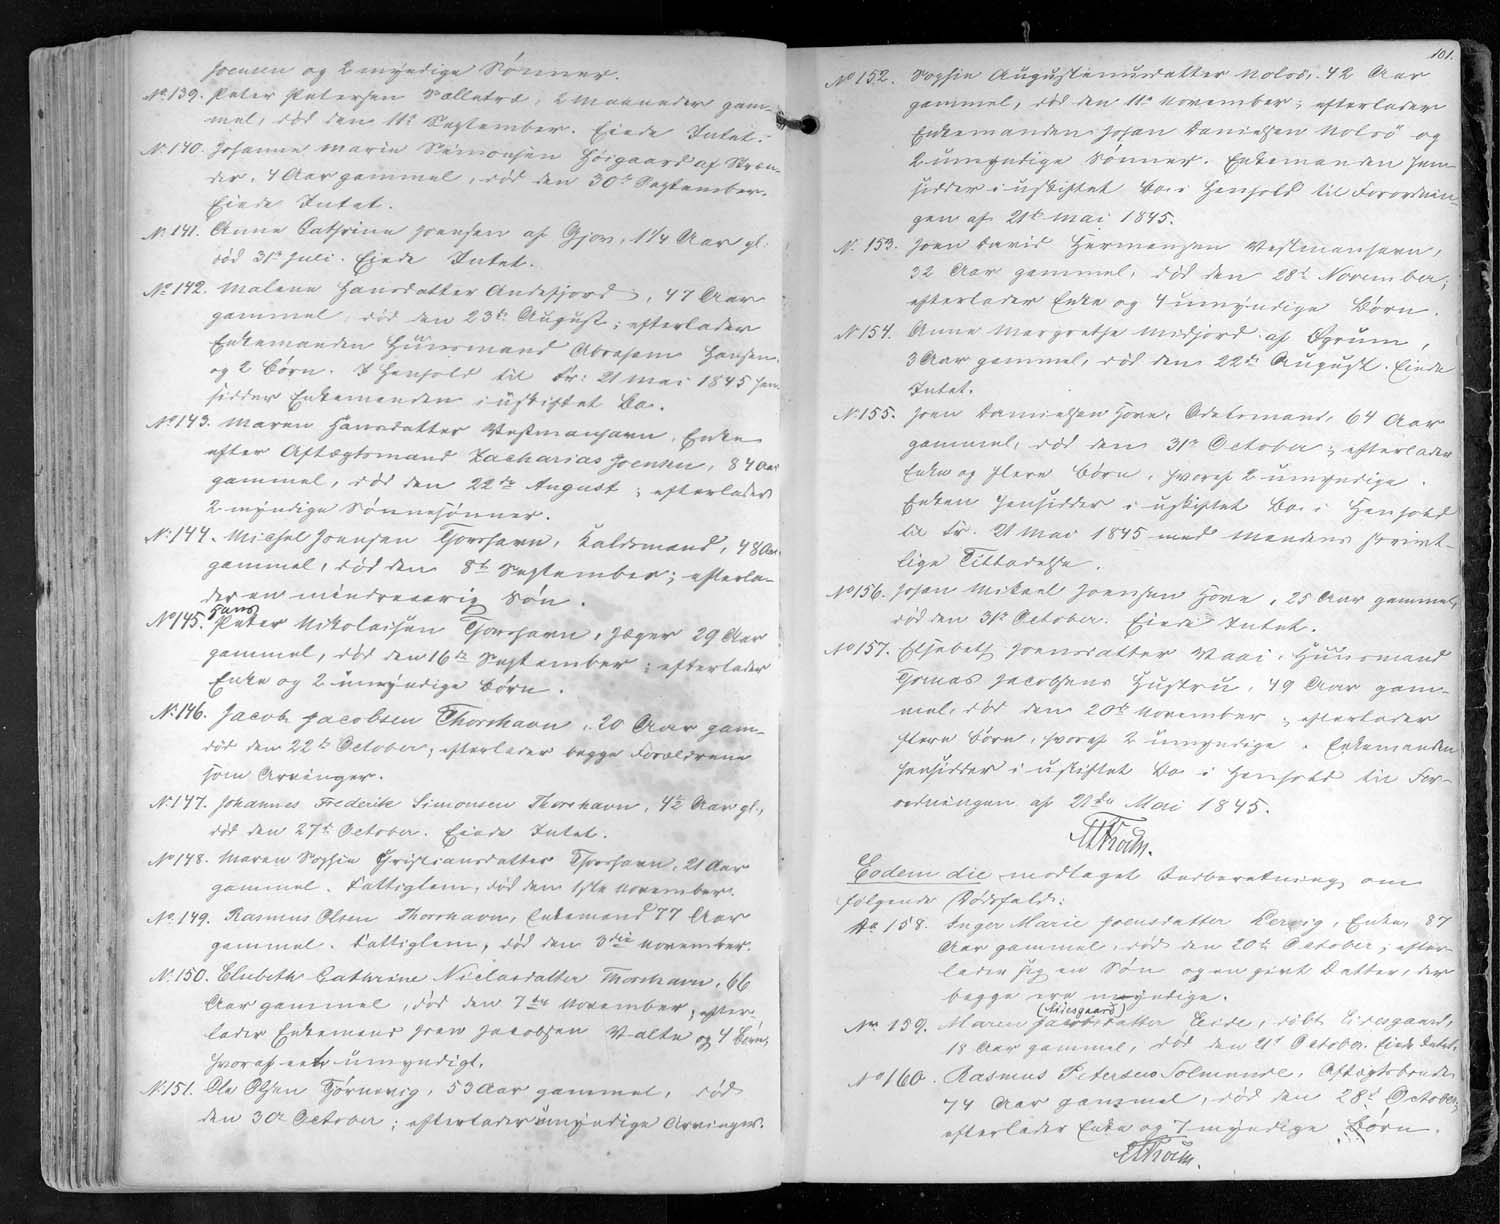 Joensen og 2 myndige Sønner.
No 139. Peter Petersen Sælletræ, 2 Maaneder gam-
mel, død den 11te September. Eiede Intet.
No 140. Johanne Marie Simonsen Høigaard af Stræn-
der, 4 Aar gammel, død den 30te September.
Eiede Intet.
No 141. Anne Cathrine Joensen af Gjov, 1 1/4 Aar gl.
død 31te Juli. Eiede Intet.
No 142. Malene Hansdatter Andefjord, 47 Aar
gammel, død den 23de August; efterlader
Enkemanden Huusmand Abraham Hansen
og 2 Børn. I Henhold til Fr: 21 Mai 1845 hen-
sidder Enkemanden i uskiftet Bo.
No 143. Maren Hansdatter Vestmanhavn, Enke
efter Aftægtsmand Zacharias Joensen, 84 Aar
gammel, død den 22de August; efterlader
2 myndige Sønnesønner.
No 144. Michel Joensen Thorshavn, Kaldsmand, 48 Aar
gammel, død den 8de September; efterla-
der en mindreaarig Søn.
Hans
No 145. Peter Nikolaisen Thorshavn, Jæger 29 Aar
gammel, død den 16de September; efterlader
Enke og 2 umyndige Børn.
No 146. Jacob Jacobsen Thorshavn, 20 Aar gam-
død den 22de October, efterlader begge Forældrene
som Arvinger.
No 147. Johannes Frederik Simonsen Thorshavn, 4 1/2 Aar gl.,
død den 27de October. Eiede Intet.
No 148. Maren Sophie Christiansdatter Thorshavn, 21 Aar
gammel. Fattiglem, død den 1ste November.
No 149. Rasmus Olsen Thorshavn, Enkemand 77 Aar
gammel. Fattiglem, død den 3die November.
No 150. Elsebeth Cathrine Niclasdatter Thorshavn, 66
Aar gammel, død den 7de November, efter-
lader Enkemand Joen Jacobsen Valte og 4 Børn,
hvoraf eet umyndigt.
No 151. Ole Olsen Tjørnevig, 53 Aar gammel, død
den 30te October; efterlader umyndige Arvinger.
101.
No 152. Sophie Augustinusdatter Nolsö, 42 Aar
gammel, død den 11te November; efterlader
Enkemanden Johan Danielsen Nolsö og
2 umyndige Sønner. Enkemanden hen-
sidder i uskiftet Bo i Henhold til Forordnin-
gen af 21de Mai 1845.
No 153. Joen David Hermansen Vestmanhavn,
32 Aar gammel, død den 28de November;
efterlader Enke og 4 umyndige Børn.
No 154. Anne Margrethe Midjord af Øgrum,
3 Aar gammel, død den 22de August. Eiede
Intet.
No 155. Joen Danielsen Hove, Odelsmand, 64 Aar
gammel, død den 31te October; efterlader
Enke og flere Børn, hvoraf 2 umyndige.
Enken hensidder i uskiftet Bo i Henhold
til Fr. 21 Mai 1845 med Mandens skrivt-
lige Tilladelse.
No 156. Johan Mikael Joensen Hove, 25 Aar gammel,
død den 31te October. Eiede Intet.
No 157. Elsebeth Joensdatter Vaai, Huusmand
Thomas Jacobsens Hustru, 49 Aar gam-
mel, død den 20de November, efterlader
flere Børn, hvoraf 2 umyndige. Enkemanden
hensidder i uskiftet Bo i Henhold til For-
ordningen af 21de Mai 1845.
Eodem die modtaget Indberetning om
følgende Dødsfald:
No 158. Inger Marie Joensdatter Lervig, Enke, 87
Aar gammel, død den 20de October; efter-
lader sig en Søn og en givt Datter, der
begge ere myndige.
(Eidesgaard)
No 159. Maren Jacobsdatter Eide, døbt Eidesgaard,
18 Aar gammel, død den 21de October. Eiede Intet.
No 160. Rasmus Petersen Solmunde, Aftægtsbonde
74 Aar gammel, død den 28de October,
efterlader Enke og 7 myndige Børn.